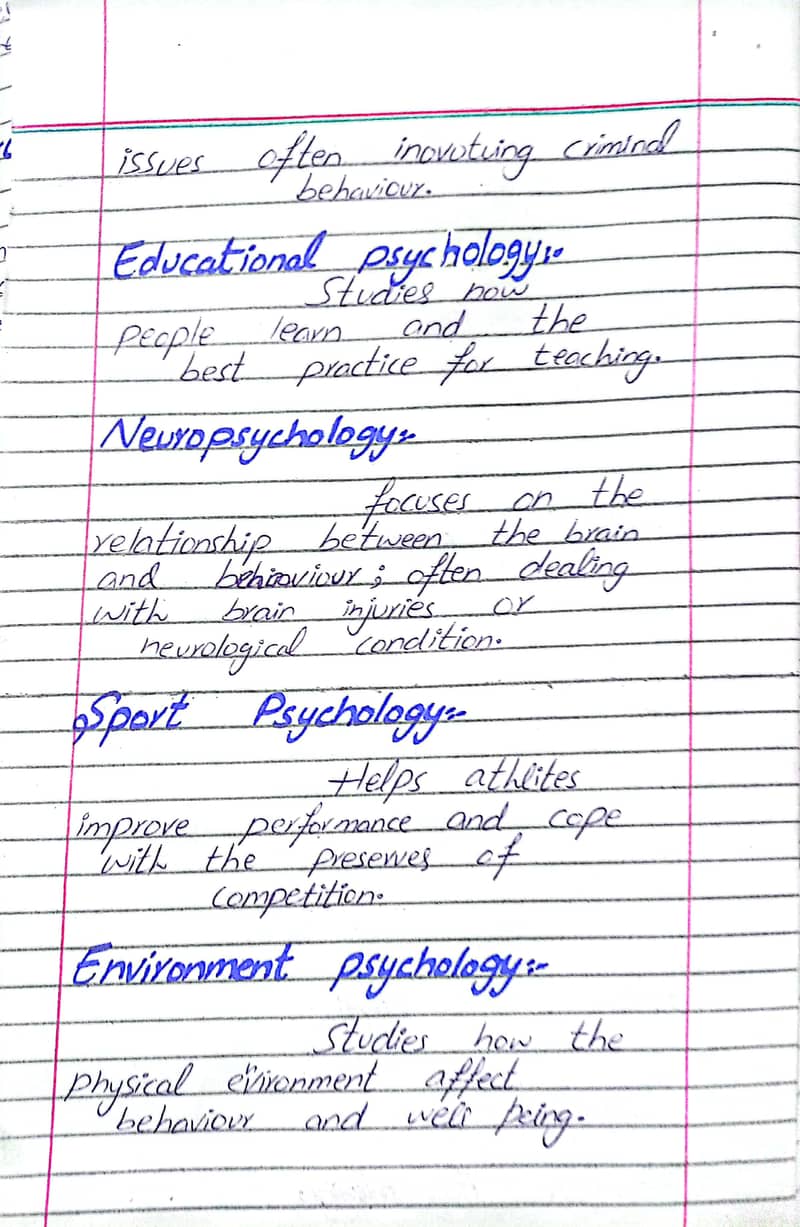 issues often inovotving criminal
behaviour.
Educational psychology:-
Studies how
people learn and the
best practice for teaching.
Neuropsychology:-
focuses on the
relationship between the brain
and behiaviour; often dealing
with brain injuries or
neurological condition.
Sport Psychology:-
Helps athlites
improve performance and cope
with the preserves of
competition.
Environment psychology:-
Studies how the
physical environment affect
behaviour and well being.